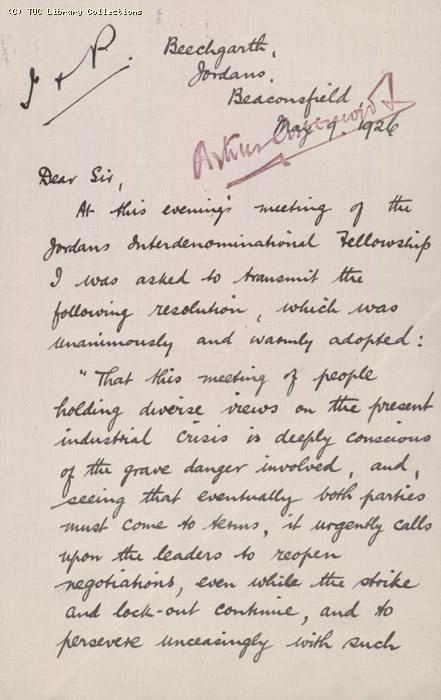 (C) TUC Library Collections
Beechgarth,
Jordans,
Beaconsfield
May 9. 1926
Arthur
Dear Sir,
At this evening's meeting of the
Jordans Interdenominational Fellowship
I was asked to transmit the
following resolution, which was
unanimously and warmly adopted:
"That this meeting of people
holding diverse views on the present
industrial crisis is deeply conscious
of the grave danger involved, and,
seeing that eventually both parties
must come to terms, it urgently calls
upon the leaders to reopen
negotiations, even while the strike
and lock-out continue, and to
persevere unceasingly with such